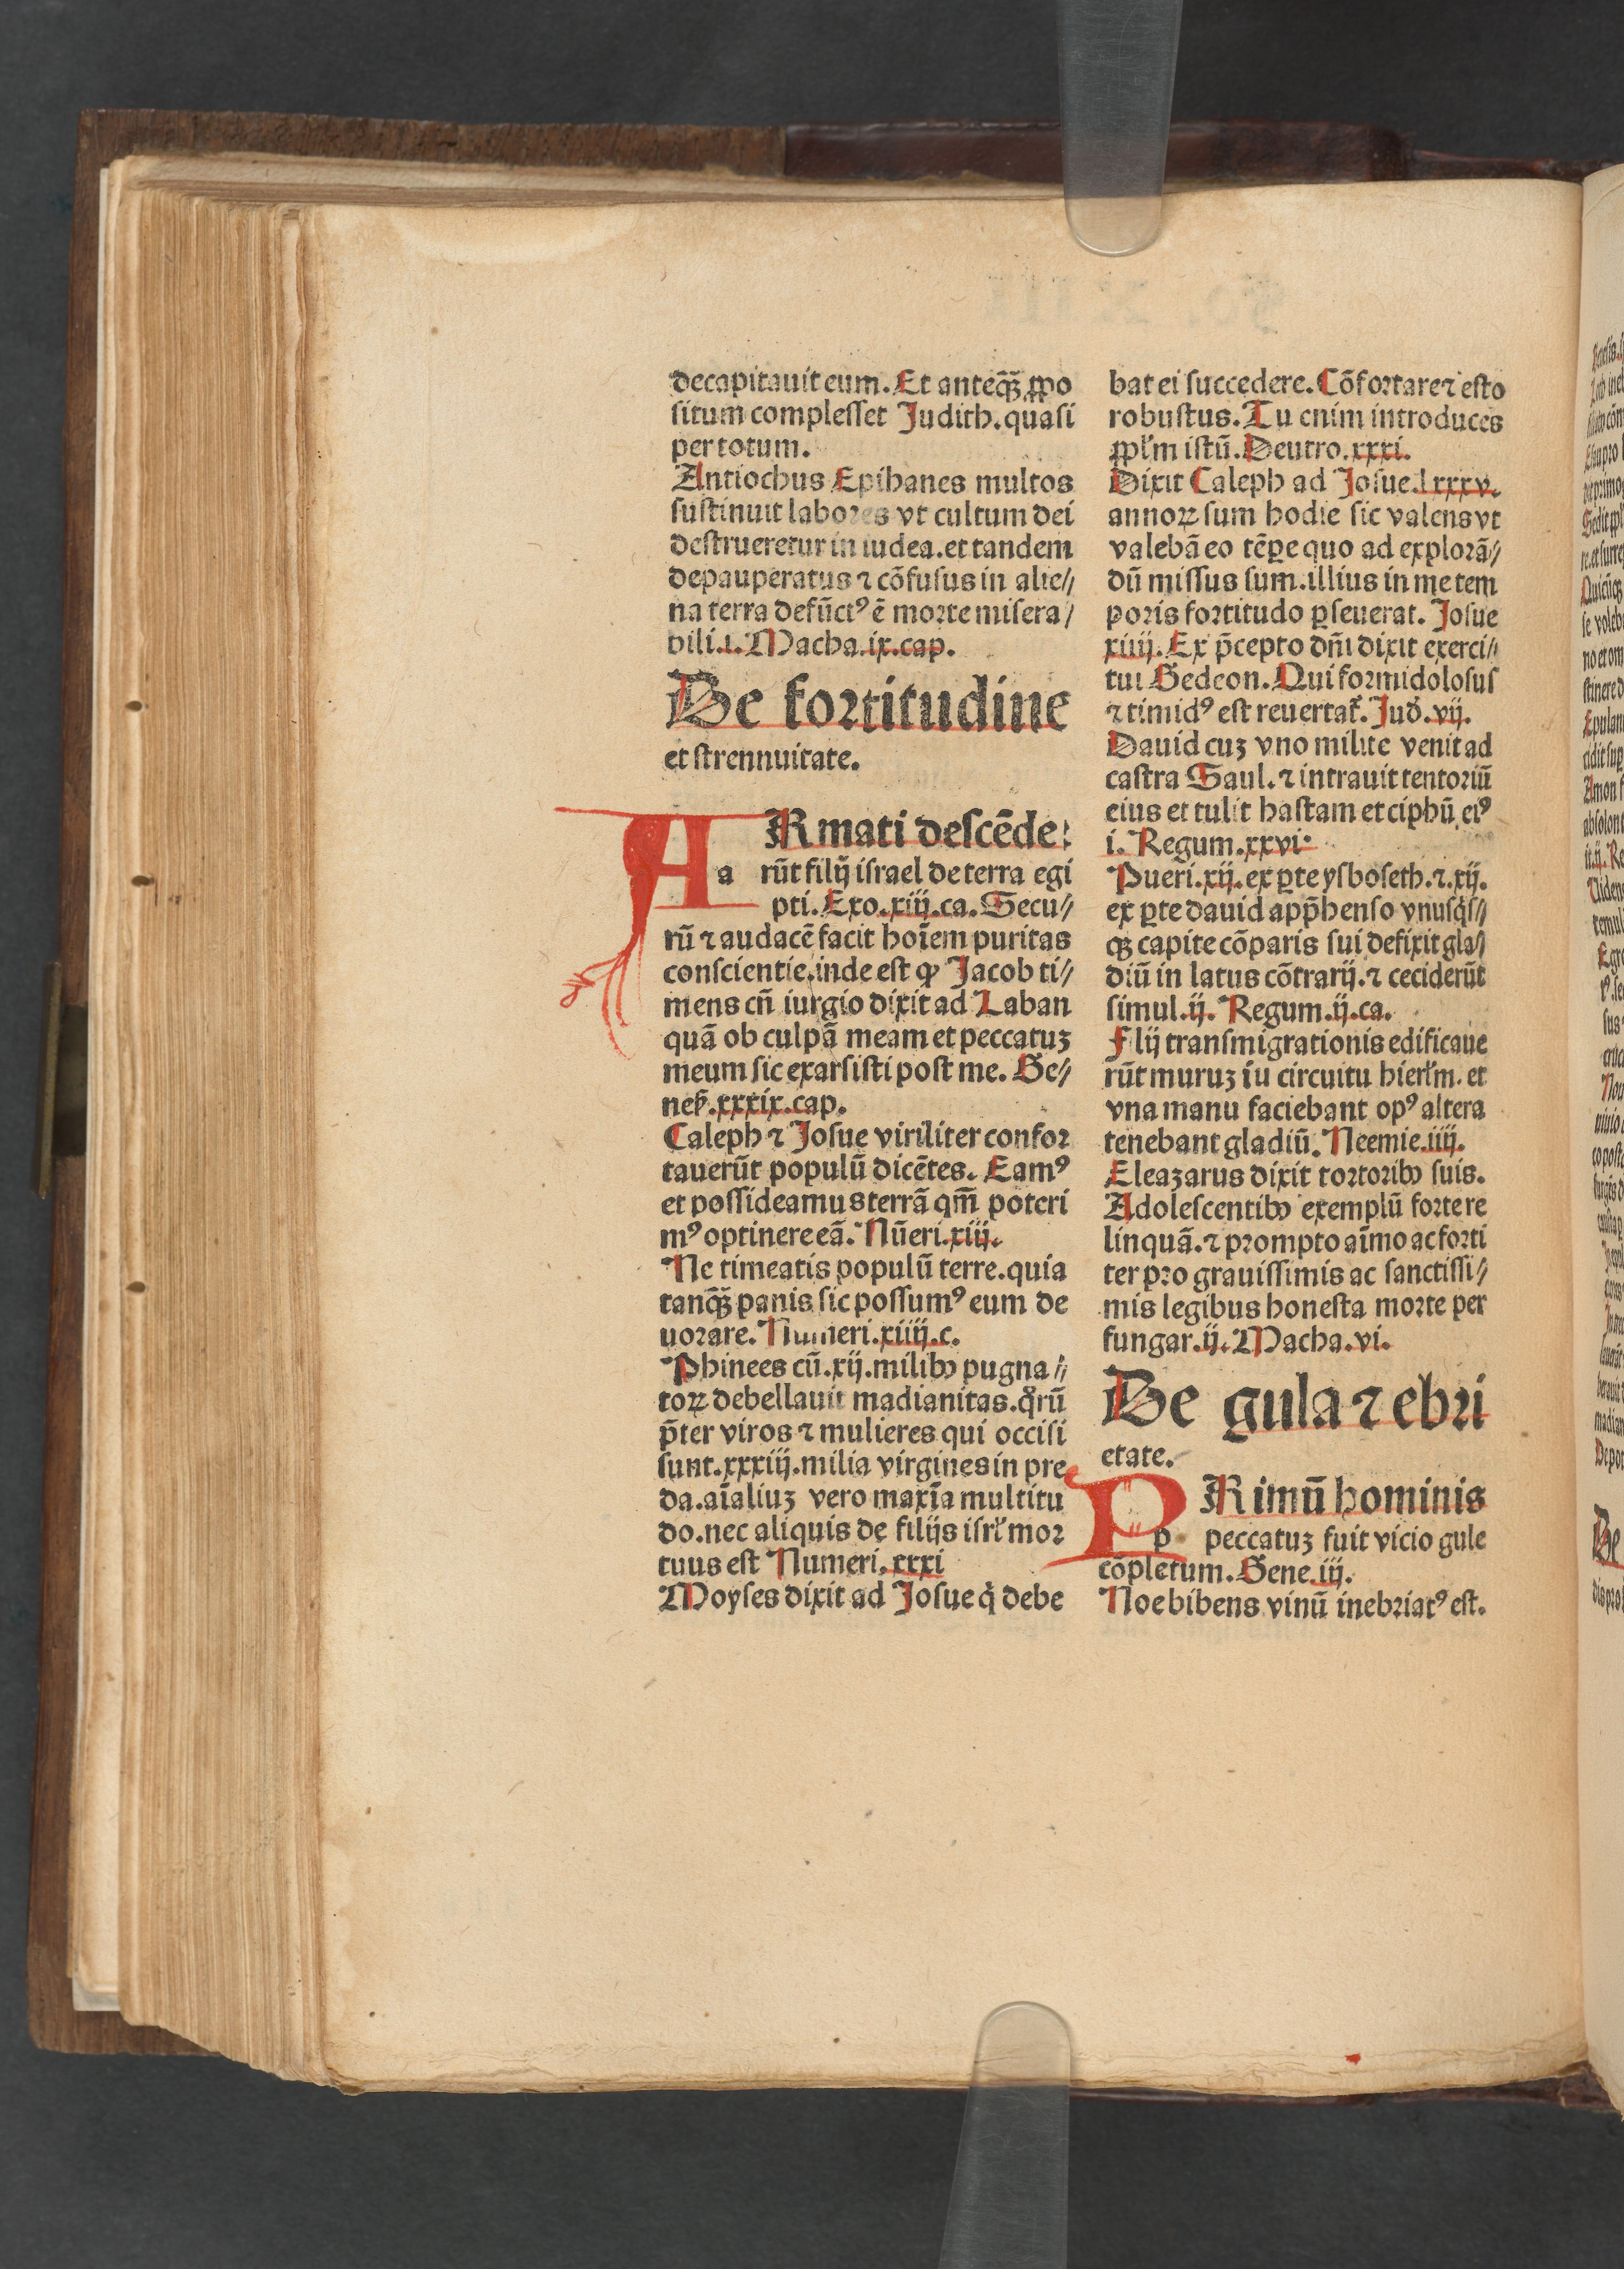 decapitauit eum. Et anteq̄ꝫ ꝓpo
situm complesset Judith. quasi
per totum.
Antiochus Epihanes multos
sustinuit labores vt cultum dei
destrueretur in iudea. et tandem
depauperatus ⁊ cōfusus in alie//
na terra defūctꝰ ē morte misera/
bili .i. Macha .ix. cap.
De fortitudine
et strennuitate.
ARmati descēde:
a rūt filij israel de terra egi
pti. Exo .xiij. ca. Secu//
rū ⁊ audacē facit hoīem puritas
conscientie. inde est ꝙ Jacob ti//
mens cū iurgio dixit ad Laban
quā ob culpā meam et peccatuꝫ
meum sic exarsisti post me. Ge//
neẜ .xxxix. cap.
Caleph ⁊ Josue viriliter confoꝛ
tauerūt populū dicētes. Eamꝰ
et possideamus terrā qm̄ poteri
mꝰ optinere eā. Nūeri .xiij.
Ne timeatis populū terre. quia
tanq̄ꝫ panis sic possumꝰ eum de
uorare. Numeri .xiiij. c.
Phinees cū .xij. milibꝰ pugna//
toꝝ debellauit madianitas. q̊rū
p̄ter viros ⁊ mulieres qui occisi
sunt .xxxiij. milia virgines in pre
da. aīaliuꝫ vero maxīa multitu
do. nec aliquis de filijs isrl̄ moꝛ
tuus est Numeri .xxxi
Moyses dixit ad Josue q̇ debe
bat ei succedere. Cōfortare ⁊ esto
robustus. Tu enim introduces
ꝓpl̄m istū. Deutro .xxxi.
Dixit Caleph ad Josue .lxxxv.
annoꝝ sum hodie sic valens vt
valebā eo tēꝑe quo ad explorā//
dū missus sum. illius in me tem
poris fortitudo ꝑseuerat. Josue
xiiij. Ex p̄cepto dn̄i dixit exerci//
tui Gedeon. Qui formidolosus
⁊ timidꝰ est reuertat̄. Jud̄ .vij.
Dauid cuꝫ vno milite venit ad
castra Saul. ⁊ intrauit tentoriū
eius et tulit hastam et ciphū eiꝰ
i. Regum .xxvi.
Pueri .xij. ex ꝑte ysboseth. ⁊ .xij.
ex ꝑte dauid app̄henso vnusq̇s//
qꝫ capite cōparis sui defixit gla/
diū in latus cōtrarij. ⁊ ceciderūt
simul .ij. Regum .ij. ca.
Flij transmigrationis edificaue
rūt muruꝫ iu circuitu hierl̄m. et
vna manu faciebant opꝰ altera
tenebant gladiū. Neemie .iiij.
Eleazarus dixit tortoribꝰ suis.
Adolescentibꝰ exemplū forte re
linquā. ⁊ prompto aīmo ac forti
ter pro grauissimis ac sanctissi//
mis legibus honesta morte per
fungar .ij. Macha .vi.
De gula ⁊ ebri
etate.
PRimū hominis
p peccatuꝫ fuit vicio gule
cōpletum. Gene .iij.
Noe bibens vinū inebriatꝰ est.